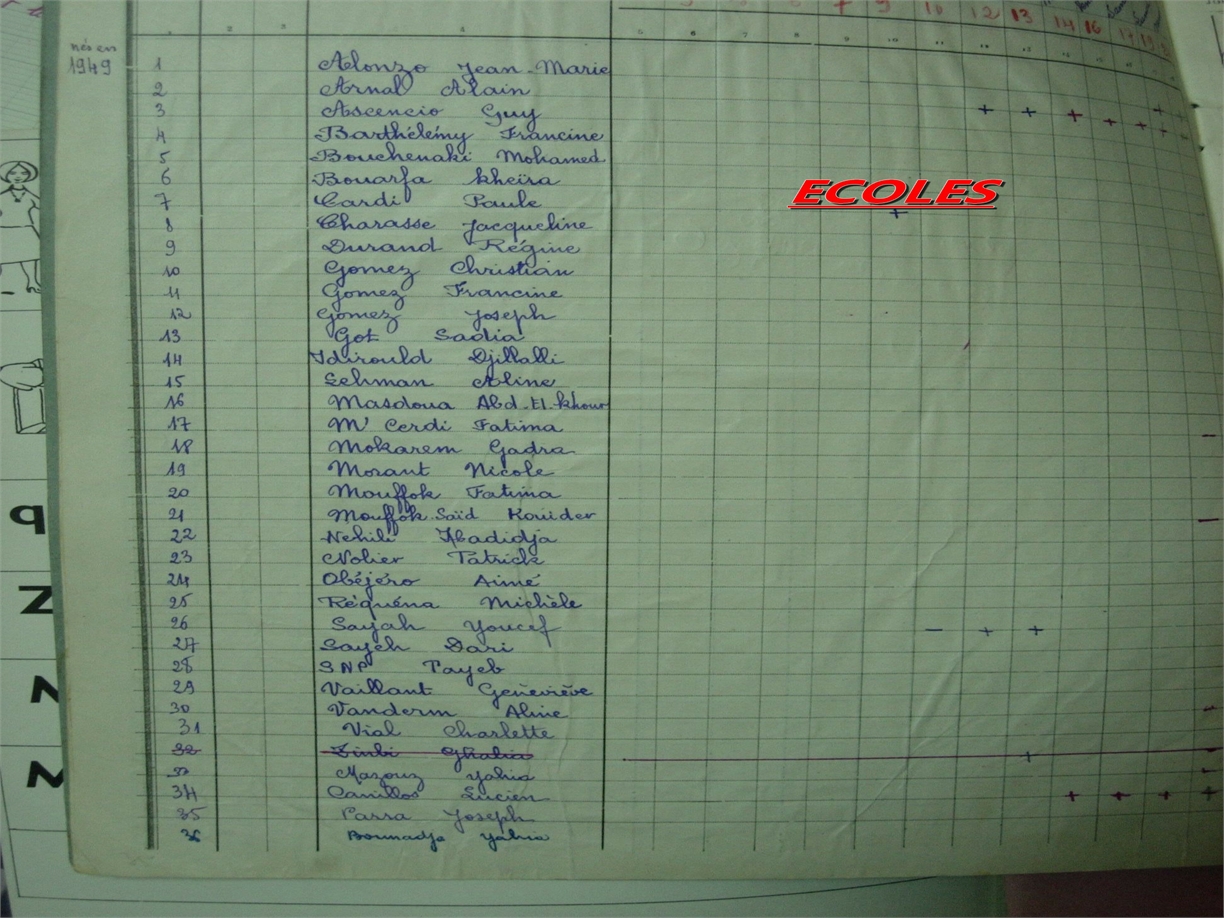 7 9 10 12 13 14 16
5 6 7 8 9 10 11
nés en
1949
1 Alonzo Jean-Marie
2 Arnal Alain
3 Ascencio Guy + + + + + +
4 Barthélémy Francine
5 Bouchenaki Mohamed
6 Bouarfa Kheïra
ECOLES
7 Cardi Paule +
8 Charasse Jacqueline
9 Durand Régine
10 Gomez Christian
11 Gomez Francine
12 Gomez Joseph
13 Got Sadia
14 Idirould Djillalli
15 Lehman Aline
16 Masdoua Abd-El-Khour
17 M' Cerdi Fatima
18 Mokarem Gadra
19 Morant Nicole
20 Mouffok Fatima
21 Mouffok Saïd Kouider
22 Nehili Khadidja
23 Nolier Patrick
24 Obéjéro Aimé
25 Réquéna Michèle
26 Sayah Youcef - + +
27 Sayeh Dari
28 SNP Tayeb
29 Vaillant Geneviève
30 Vanderm Aline
31 Vial Charlette
32 Zinbi Ghalia +
33 Mazouz Yahia
34 Canillos Lucien + + + +
35 Parra Joseph
36 Bounadja Yahia
q
Z
N
M